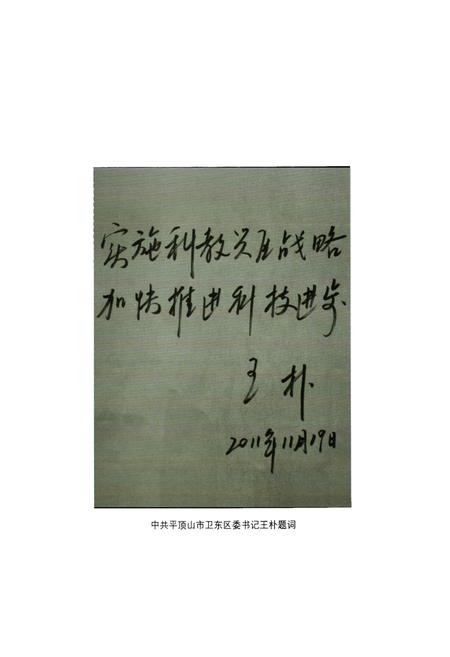 实施科教兴区战略
加快推进科技进步
王朴
2011年11月19日
中共平顶山市卫东区委书记王朴题词